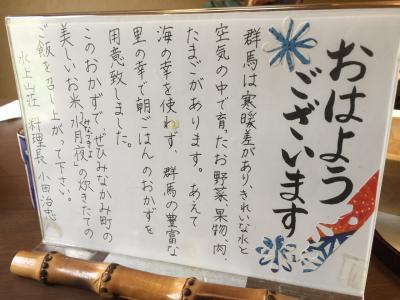 おはよう
ございます
群馬は寒暖差があり、きれいな水と
空気の中で育ったお野菜、果物、肉、
たまごがあります。あえて
海の幸を使わず、群馬の豊富な
里の幸で朝ごはんのおかずを
用意致しました。
このおかずで、ぜひみなかみ町の
美しいお米水月夜の炊きたての
みなづきよ
ご飯を召し上がって下さい。
水上山荘 料理長 小田治忠